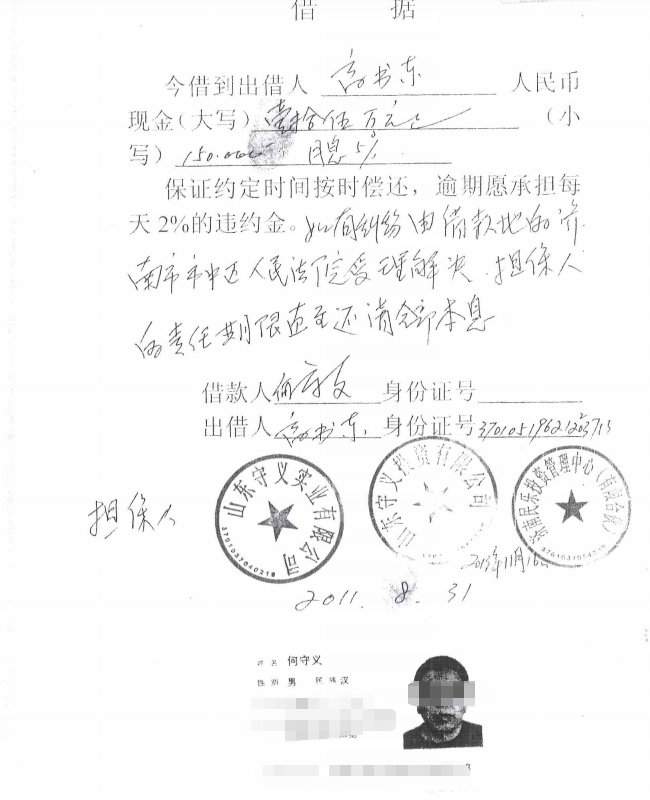 借 据
今借到出借人 高书东 人民币
现金(大写) 壹拾伍万元 (小
写) 150.000 月息5%
保证约定时间按时偿还，逾期愿承担每
天2%的违约金。如有纠纷由借款地的济
南市市中区人民法院受理解决.担保人
的责任期限直至还清全部本息
借款人 何守义 身份证号
出借人 高书东. 身份证号
担保人
山东守义实业有限公司
3701037040219
山东守义投资有限公司
济南民乐投资管理中心(有限合伙)
2011. 8. 31
姓名 何守义
性别 男 民族 汉